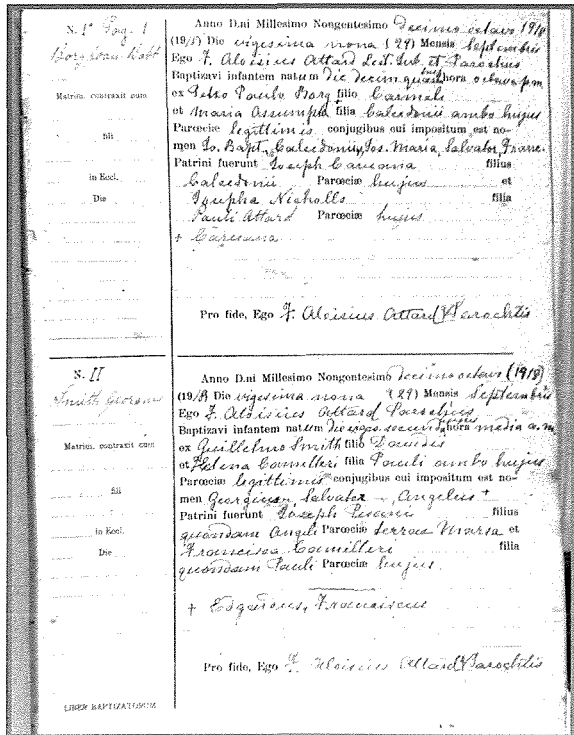 N. I° Pag. 1
Borg Joan Batt
Matrim. contraxit cum
fil
in Eccl.
Die
Anno D.ni Millesimo Nongentesimo Decimo octavo 1918
(19/8) Die vigesima nona (29) Mensis Septembris
Ego F. Aloisius Attard Lect. Jub. et Parochus
Baptizavi infantem natum die decim hora octava p.m
ex Petro Paulo Borg filio Carmeli
et Maria Assumpta filia Calcedonii ambo hujus
Parœciæ legittimis conjugibus cui impositum est no-
men Jo. Bapt., Calcedonius, Jos. Maria, Salvator, Franc.
Patrini fuerunt Joseph Caruana filius
Calcedonii Parœciæ hujus et
Josepha Nicholls filia
Pauli Attard Parœciæ hujus
+ Caruana
Pro fide, Ego F. Aloisius Attard Parochus
N. II
Smith Georgius
Matrim. contraxit cum
fil
in Eccl.
Die
Anno D.ni Millesimo Nongentesimo decimo octavo (1918)
(19/8) Die vigesima nona (29) Mensis Septembris
Ego F. Aloisius Attard Parochus
Baptizavi infantem natum hora media a.m
ex Guillelmo Smith filio Davidis
et Helena Camilleri filia Pauli ambo hujus
Parœciæ legittimis conjugibus cui impositum est no-
men Georgius, Salvator, Angelus +
Patrini fuerunt Joseph Pisani filius
quondam Angeli Parœciæ terrae Marsa et
Francisca Camilleri filia
quondam Pauli Parœciæ hujus
+ Edgardus, Franciscus
Pro fide, Ego F. Aloisius Attard Parochus
LIBER BAPTIZATORUM